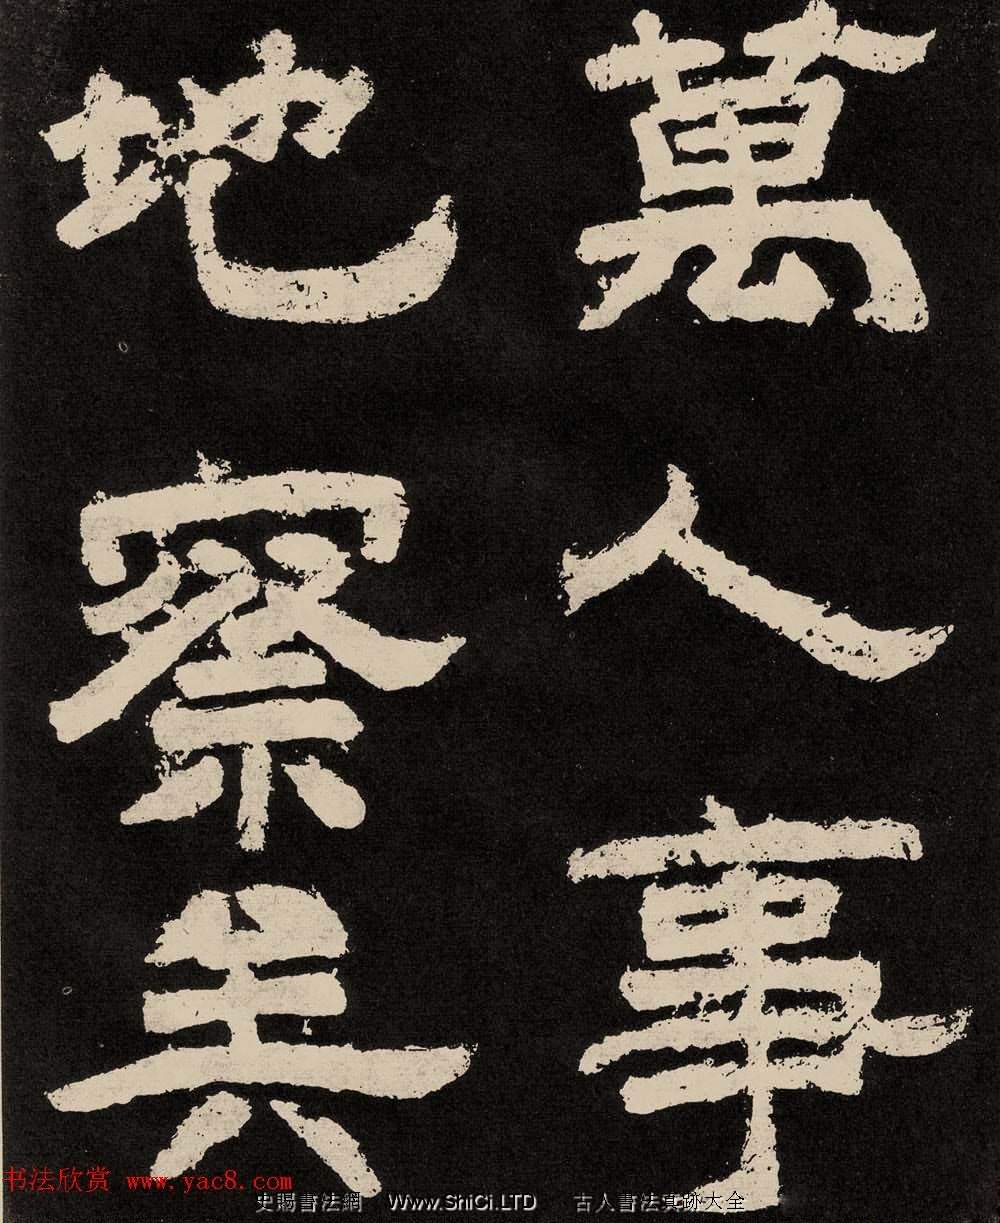 萬人事
地察
书法欣赏 www.yac8.com
史賜書法網 Www.ShiCi.LTD 古人書法真跡大全